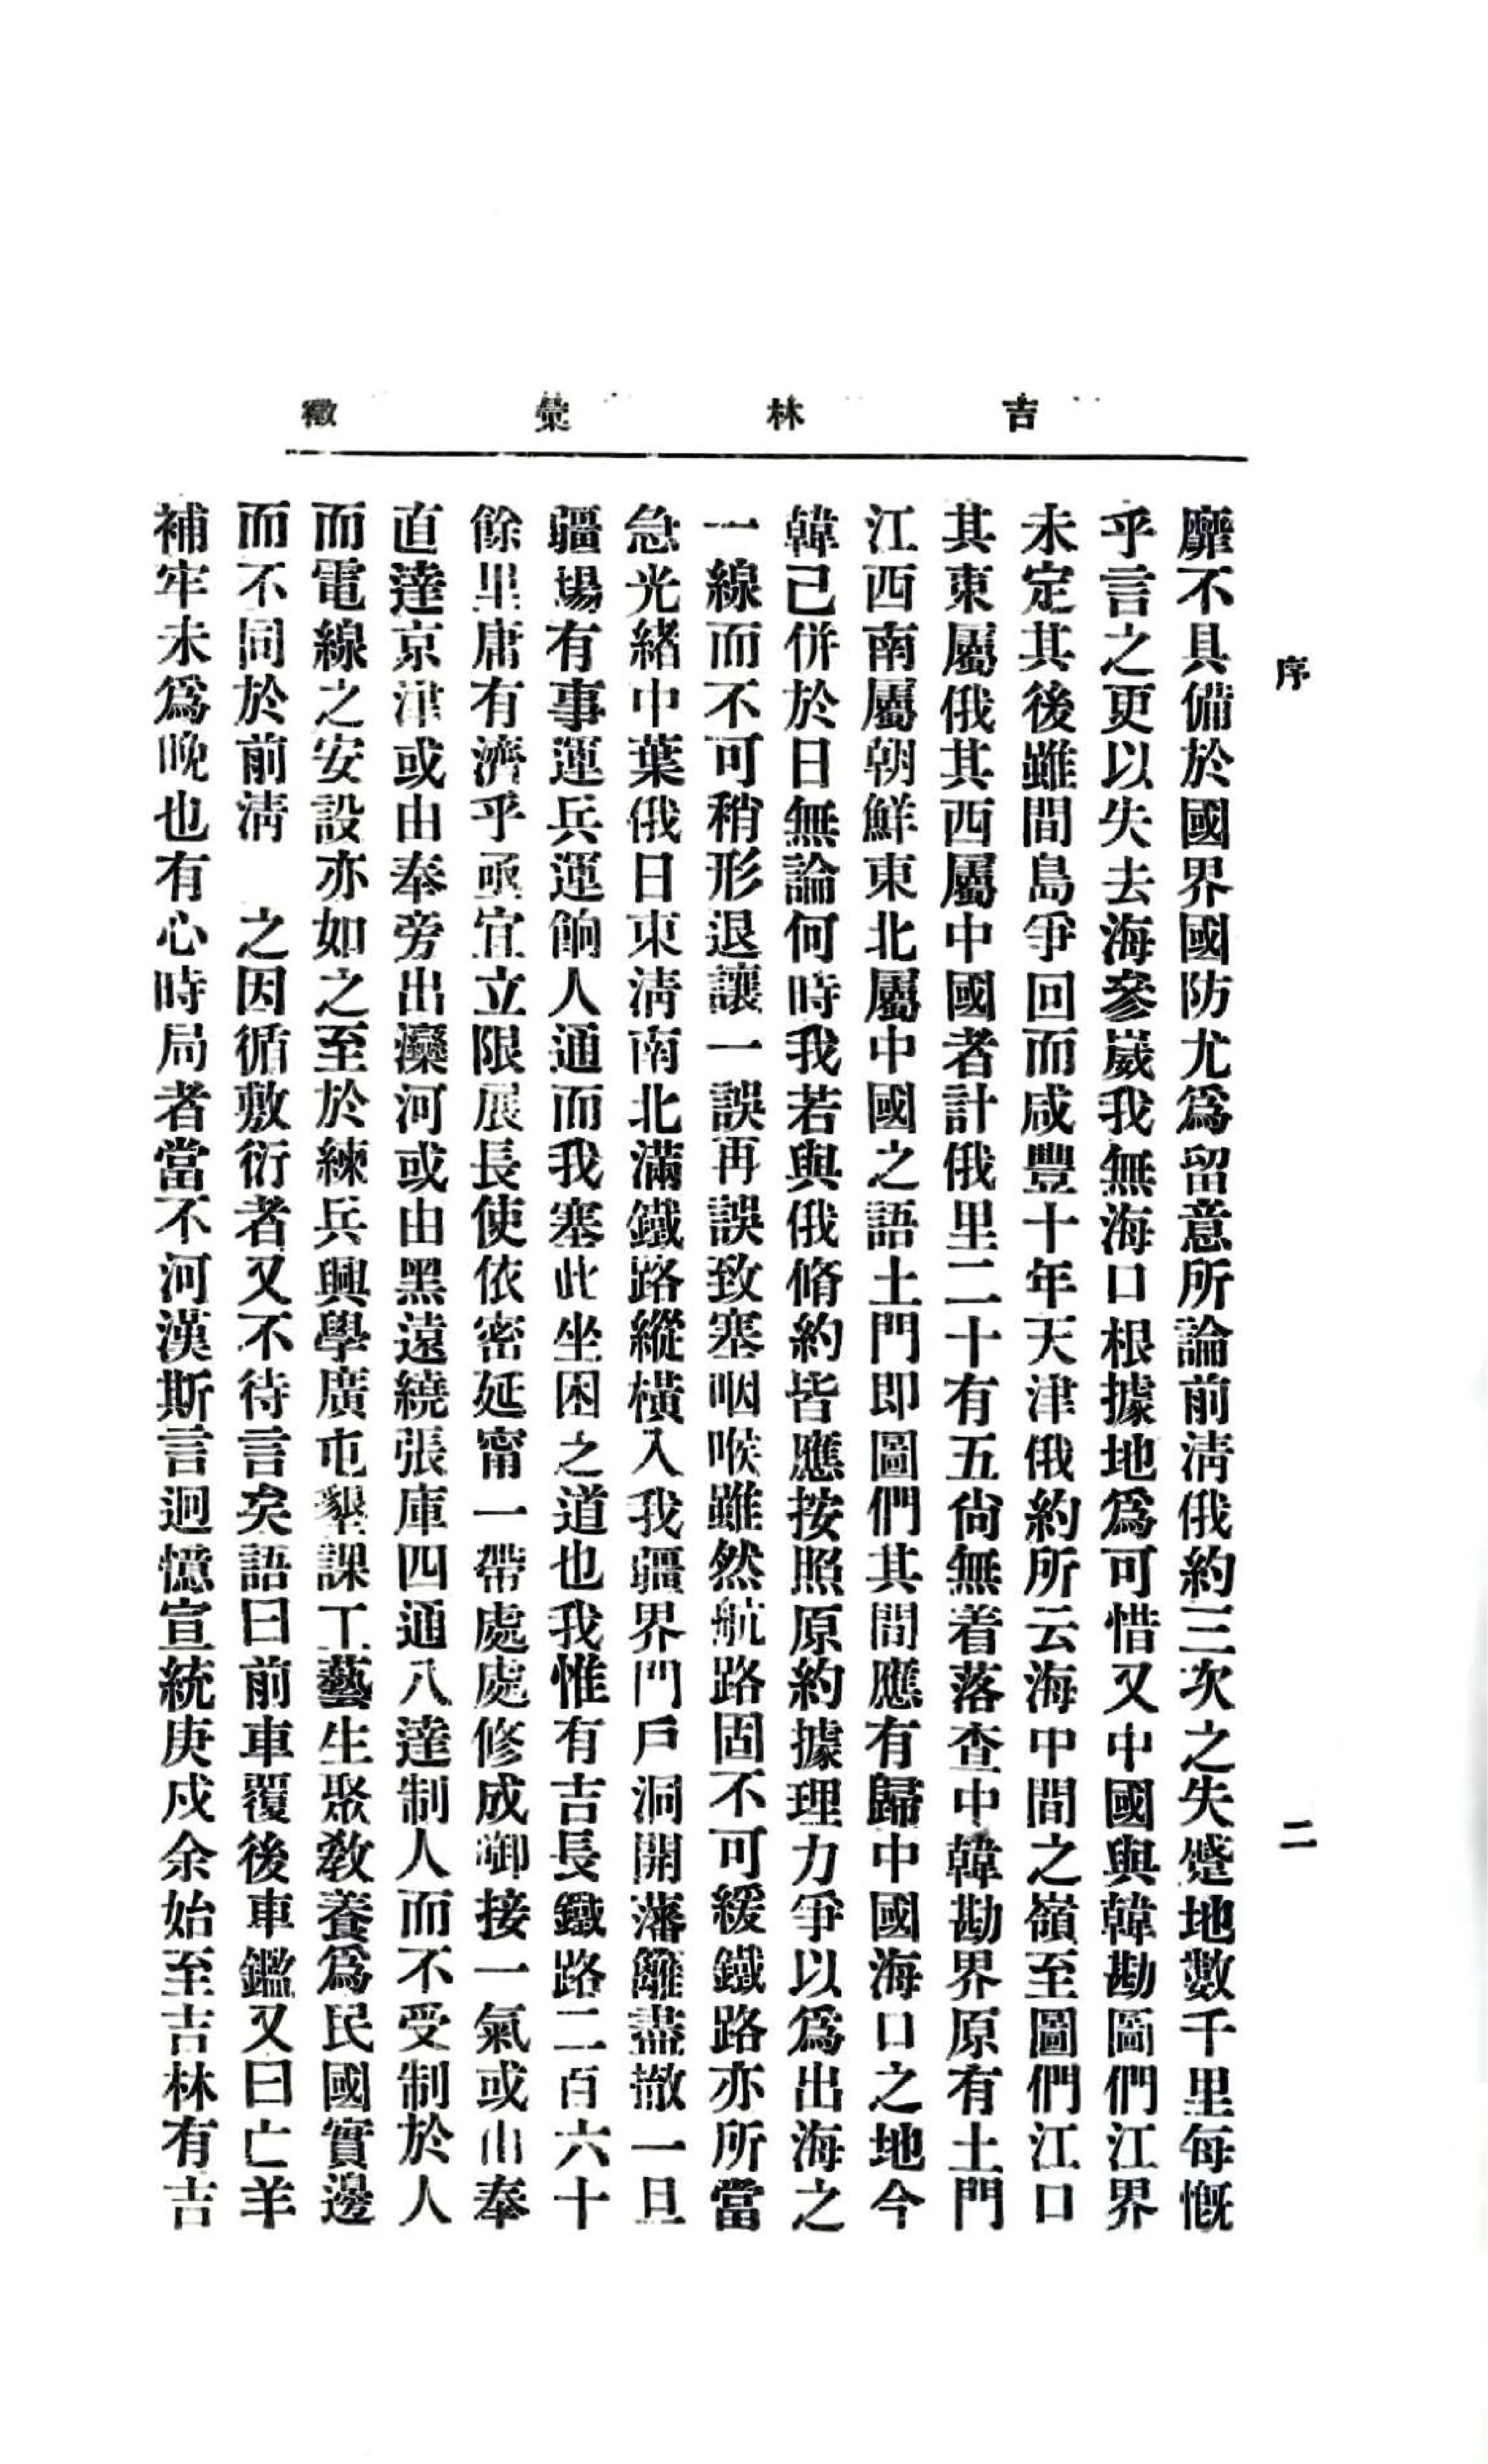 吉林彙徵
序
二
靡不具備於國界國防尤爲留意所論前淸俄約三次之失蹙地數千里每慨
乎言之更以失去海參崴我無海口根據地爲可惜又中國與韓勘圖們江界
未定其後雖間島爭回而咸豐十年天津俄約所云海中間之嶺至圖們江口
其東屬俄其西屬中國者計俄里二十有五尙無着落查中韓勘界原有土門
江西南屬朝鮮東北屬中國之語土門即圖們其間應有歸中國海口之地今
韓己併於日無論何時我若與俄脩約皆應按照原約據理力爭以爲出海之
一線而不可稍形退讓一誤再誤致塞咽喉雖然航路固不可緩鐵路亦所當
急光緖中葉俄日東淸南北滿鐵路縱橫入我疆界門戶洞開藩籬盡撤一旦
疆場有事運兵運餉人通而我塞此坐困之道也我惟有吉長鐵路二百六十
餘里庸有濟乎亟宜立限展長使依密延甯一帶處處修成啣接一氣或由奉
直達京津或由奉旁出灤河或由黑遠繞張庫四通八達制人而不受制於人
而電線之安設亦如之至於練兵興學廣屯墾課工藝生聚敎養爲民國實邊
而不同於前淸　之因循敷衍者又不待言矣語曰前車覆後車鑑又曰亡羊
補牢未爲晩也有心時局者當不河漢斯言迴憶宣統庚戌余始至吉林有吉